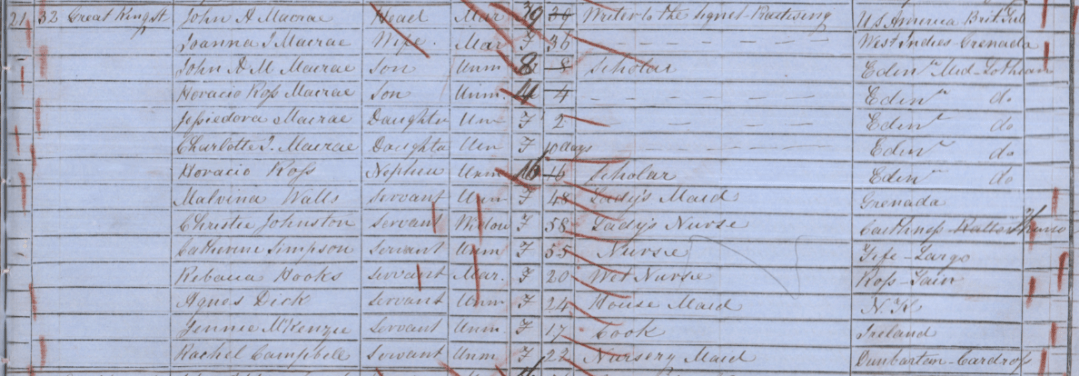 21 32 Great King St John A Macrae Head Mar 39 39 Writer to the Signet Practising U.S. America Brit. Sub
Joanna J. Macrae Wife. Mar F 36 West Indies Grenada
John A M Macrae Son Unm 8 8 Scholar Edinr Mid-Lothian
Horacio Ross Macrae Son Unm. 4 4 Edinr do
Macrae Daughter Un F 2 Edinr do
Charlotte J. Macrae Daughter Un F 10 days Edinr do
Horacio Ross Nephew Unm 16 16 Scholar Edinr do
Malvina Walls Servant Unm F 48 Lady's Maid Grenada
Christie Johnston Servant Widow F 58 Lady's Nurse Caithness
Catherine Simpson Servant Unm F 55 Nurse Fife-Largo
Rebecca Hooks Servant Mar. F 20 Wet Nurse Ross-Tain
Agnes Dick Servant Unm F 24 House Maid N.K
Jennie McKenzie Servant Unm F 17 Cook Ireland
Rachel Campbell Servant Unm F 22 Nursery Maid Dunbarton-Cardross